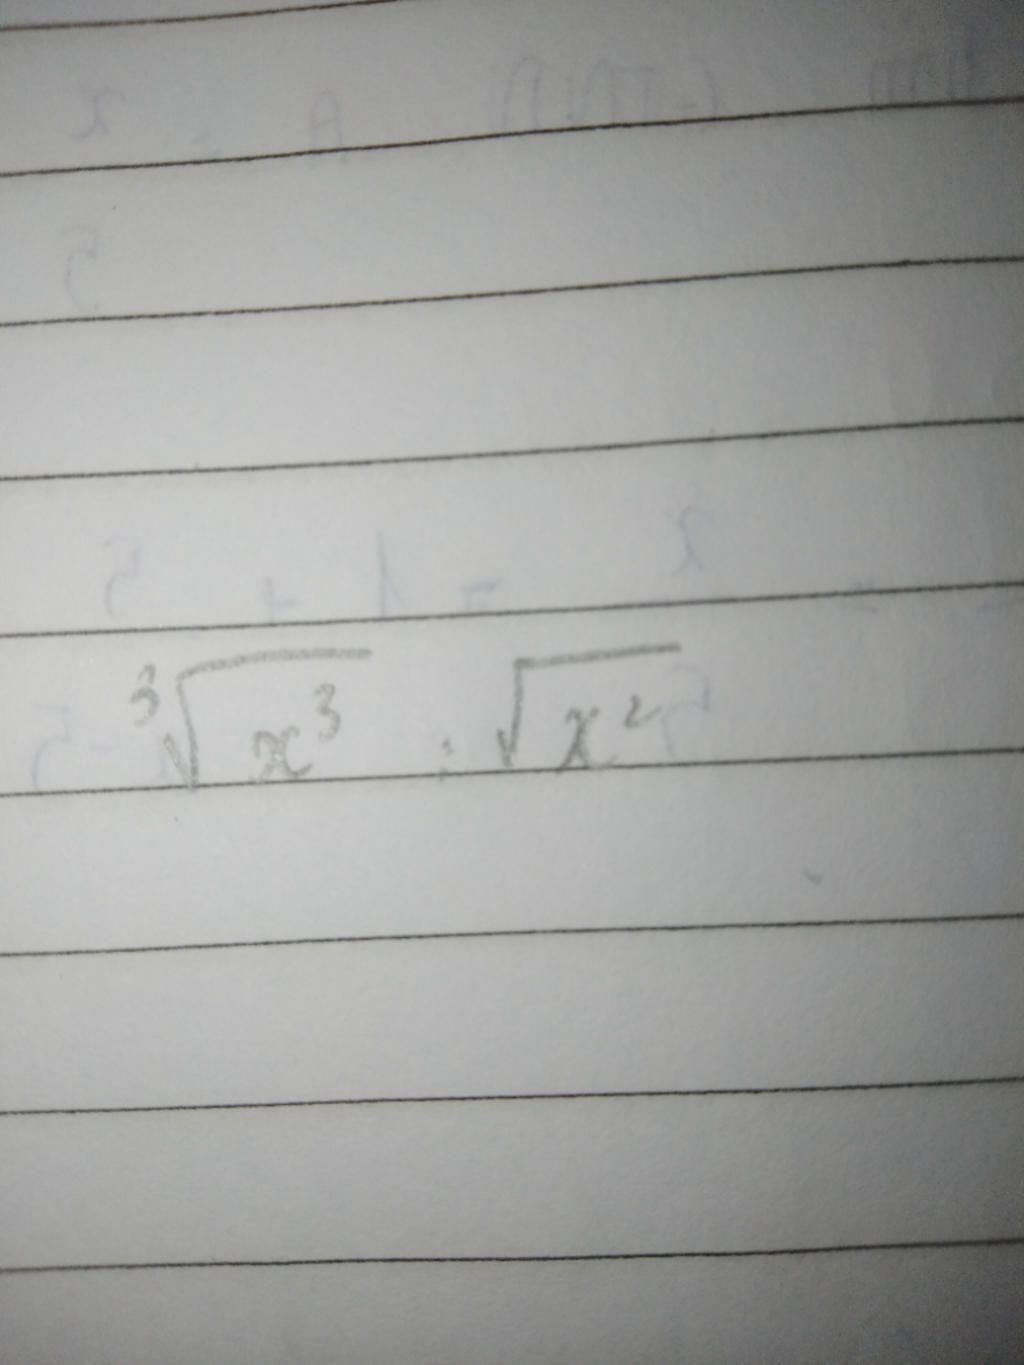 ∛x³ : √x²